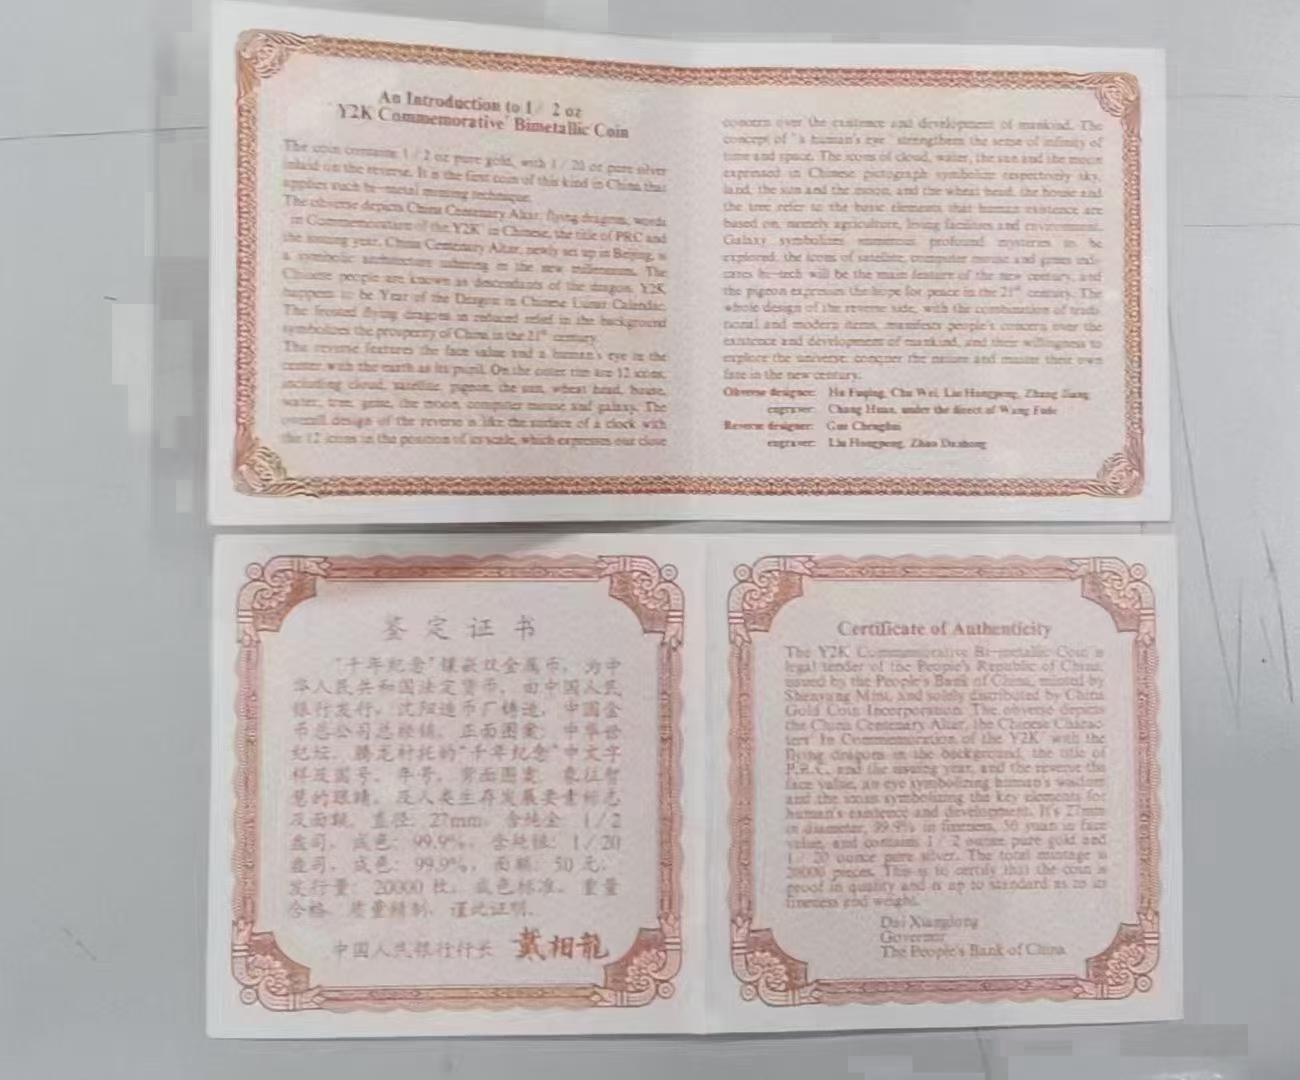 An Introduction to 1／2 oz
Y2K Commemorative Bimetallic Coin
The coin contains 1／2 oz pure gold, with 1／20 oz pure silver
inlaid on the reverse. It is the first coin of this kind in China that
applies such bi-metal minting technique.
The obverse depicts China Centenary Altar, flying dragons, words
"in Commemoration of the Y2K" in Chinese, the title of PRC and
the issuing year. China Centenary Altar, newly set up in Beijing, is
a symbolic architecture ushering in the new millennium. The
Chinese people are known as descendants of the dragon. Y2K
happens to be Year of the Dragon in Chinese Lunar Calendar.
The frosted flying dragons in reduced relief in the background
symbolizes the prosperity of China in the 21st century.
The reverse features the face value and a human's eye in the
center with the earth as its pupil. On the outer rim are 12 icons,
including cloud, satellite, pigeon, the sun, wheat head, house,
water, tree, gene, the moon, computer mouse and galaxy. The
overall design of the reverse is like the surface of a clock with
the 12 icons in the position of its scale, which expresses our close
concern over the existence and development of mankind. The
concept of "a human's eye" strengthens the sense of infinity of
time and space. The icons of cloud, water, the sun and the moon
expressed in Chinese pictograph symbolize respectively sky,
land, the sun and the moon, and the wheat head, the house and
the tree refer to the basic elements that human existence are
based on, namely agriculture, living facilities and environment.
Galaxy symbolizes numerous profound mysteries to be
explored, the icons of satellite, computer mouse and genes indi-
cates hi-tech will be the main feature of the new century, and
the pigeon expresses the hope for peace in the 21st century. The
whole design of the reverse side, with the combination of tradi-
tional and modern items, manifests people's concern over the
existence and development of mankind, and their willingness to
explore the universe, conquer the nature and master their own
fate in the new century.
Obverse designer: Hu Fuqing, Chu Wei, Liu Hongpeng, Zhang Jiang
engraver: Chang Huan, under the direct of Wang Fude
Reverse designer: Guo Chenghui
engraver: Liu Hongpeng, Zhao Dazhong
鉴定证书
"千年纪念"镶嵌双金属币，为中
华人民共和国法定货币，由中国人民
银行发行，沈阳造币厂铸造，中国金
币总公司总经销。正面图案：中华世
纪坛、腾龙衬托的"千年纪念"中文字
样及国号、年号。背面图案：象征智
慧的眼睛，及人类生存发展要素标志
及面额。直径：27mm，含纯金：1/2
盎司，成色：99.9%，含纯银：1/20
盎司，成色：99.9%，面额：50元，
发行量：20000枚。成色标准，重量
合格，质量精制，谨此证明。
中国人民银行行长 戴相龍
Certificate of Authenticity
The Y2K Commemorative Bi-metallic Coin is
legal tender of the People's Republic of China,
issued by the People's Bank of China, minted by
Shenyang Mint, and solely distributed by China
Gold Coin Incorporation. The obverse depicts
the China Centenary Altar, the Chinese Charac-
ters" In Commemoration of the Y2K" with the
flying dragons in the background, the title of
P.R.C. and the issuing year, and the reverse the
face value, an eye symbolizing human's wisdom
and the icons symbolizing the key elements for
human's existence and development. It's 27mm
in diameter, 99.9% in fineness, 50 yuan in face
value, and contains 1／2 ounce pure gold and
1／20 ounce pure silver. The total mintage is
20000 pieces. This is to certify that the coin is
proof in quality and is up to standard as to its
fineness and weight.
Dai Xianglong
Governor
The People's Bank of China